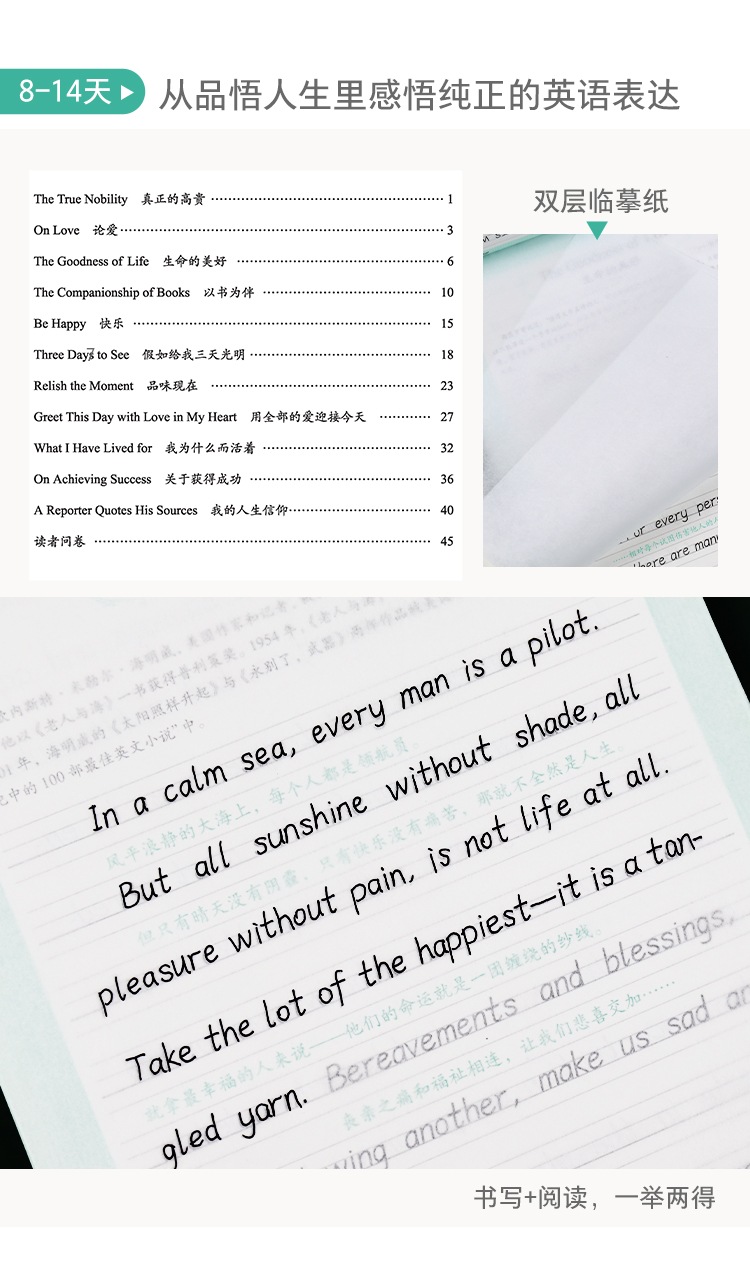 8-14天
从品悟人生里感悟纯正的英语表达
The True Nobility 真正的高贵 1
On Love 论爱 3
The Goodness of Life 生命的美好 6
The Companionship of Books 以书为伴 10
Be Happy 快乐 15
Three Days to See 假如给我三天光明 18
Relish the Moment 品味现在 23
Greet This Day with Love in My Heart 用全部的爱迎接今天 27
What I Have Lived for 我为什么而活着 32
On Achieving Success 关于获得成功 36
A Reporter Quotes His Sources 我的人生信仰 40
读者问卷 45
双层临摹纸
or every pers
here are man
欧内斯特·米勒尔·海明威，美国作家和记者，
他以《老人与海》一书获得普利策奖。1954年，《老人与海》
01年，海明威的《太阳照样升起》与《永别了，武器》两部作品被美
纪中的100部最佳英文小说”中。
In a calm sea, every man is a pilot.
风平浪静的大海上，每个人都是领航员。
But all sunshine without shade, all
但只有晴天没有阴霾，只有快乐没有痛苦，那就不全然是人生。
pleasure without pain, is not life at all.
Take the lot of the happiest—it is a tan-
就拿最幸福的人来说——他们的命运就是一团缠绕的纱线。
gled yarn. Bereavements and blessings,
丧亲之痛和福祉相连，让我们悲喜交加……
wing another, make us sad an
书写+阅读，一举两得